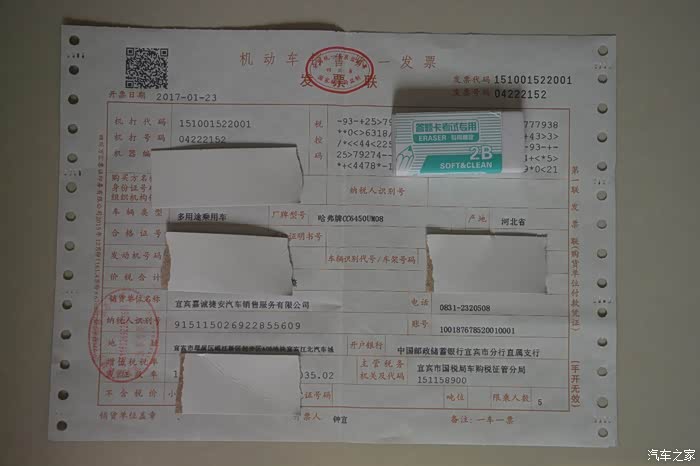 机动车销售统一发票
发票联
发票代码 151001522001
发票号码 04222152
开票日期 2017-01-23
机打代码 151001522001
机打号码 04222152
机器编
税
控
码
-93-+25>79
777938
**0<>6318/
+43>3>
/*<<44<225
25>79274--
+<*5>
*+<4478*-1
*0<21
答题卡考试专用
ERASER
2B
SOFT&CLEAN
购买方名
身份证号
组织机构
纳税人识别号
车辆类型 多用途乘用车 厂牌型号 哈弗牌CC6450UM08 产地 河北省
合格证号
证明书号
发动机号码
车辆识别代号/车架号码
价税合计
销货单位名称 宜宾嘉诚捷安汽车销售服务有限公司 电话 0831-2320508
纳税人识别号 915115026922855609 账号 100187678520010001
地
开户银行 中国邮政储蓄银行宜宾市分行直属支行
增值税税率
035.02
主管税务
机关及代码
宜宾市国税局车购税征管分局
151158900
不含税价 小
吨位
限乘人数 5
销货单位盖章
开票人 钟宜
备注:一车一票
第一联 发票联(购货单位付款凭证)
(手开无效)
汽车之家